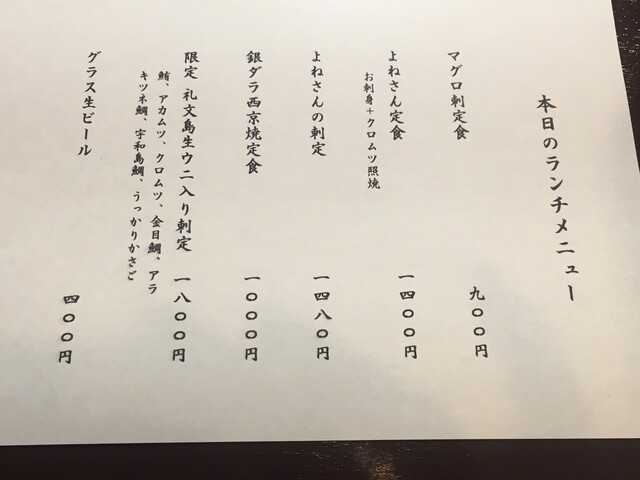 本日のランチメニュー
マグロ刺定食 九〇〇円
よねさん定食 一四〇〇円
お刺身+クロムツ照焼
よねさんの刺定 一四八〇円
銀ダラ西京焼定食 一〇〇〇円
限定 礼文島生ウニ入り刺定 一八〇〇円
鮪、アカムツ、クロムツ、金目鯛、アラ
キツネ鯛、宇和島鯛、うっかりかさご
グラス生ビール 四〇〇円